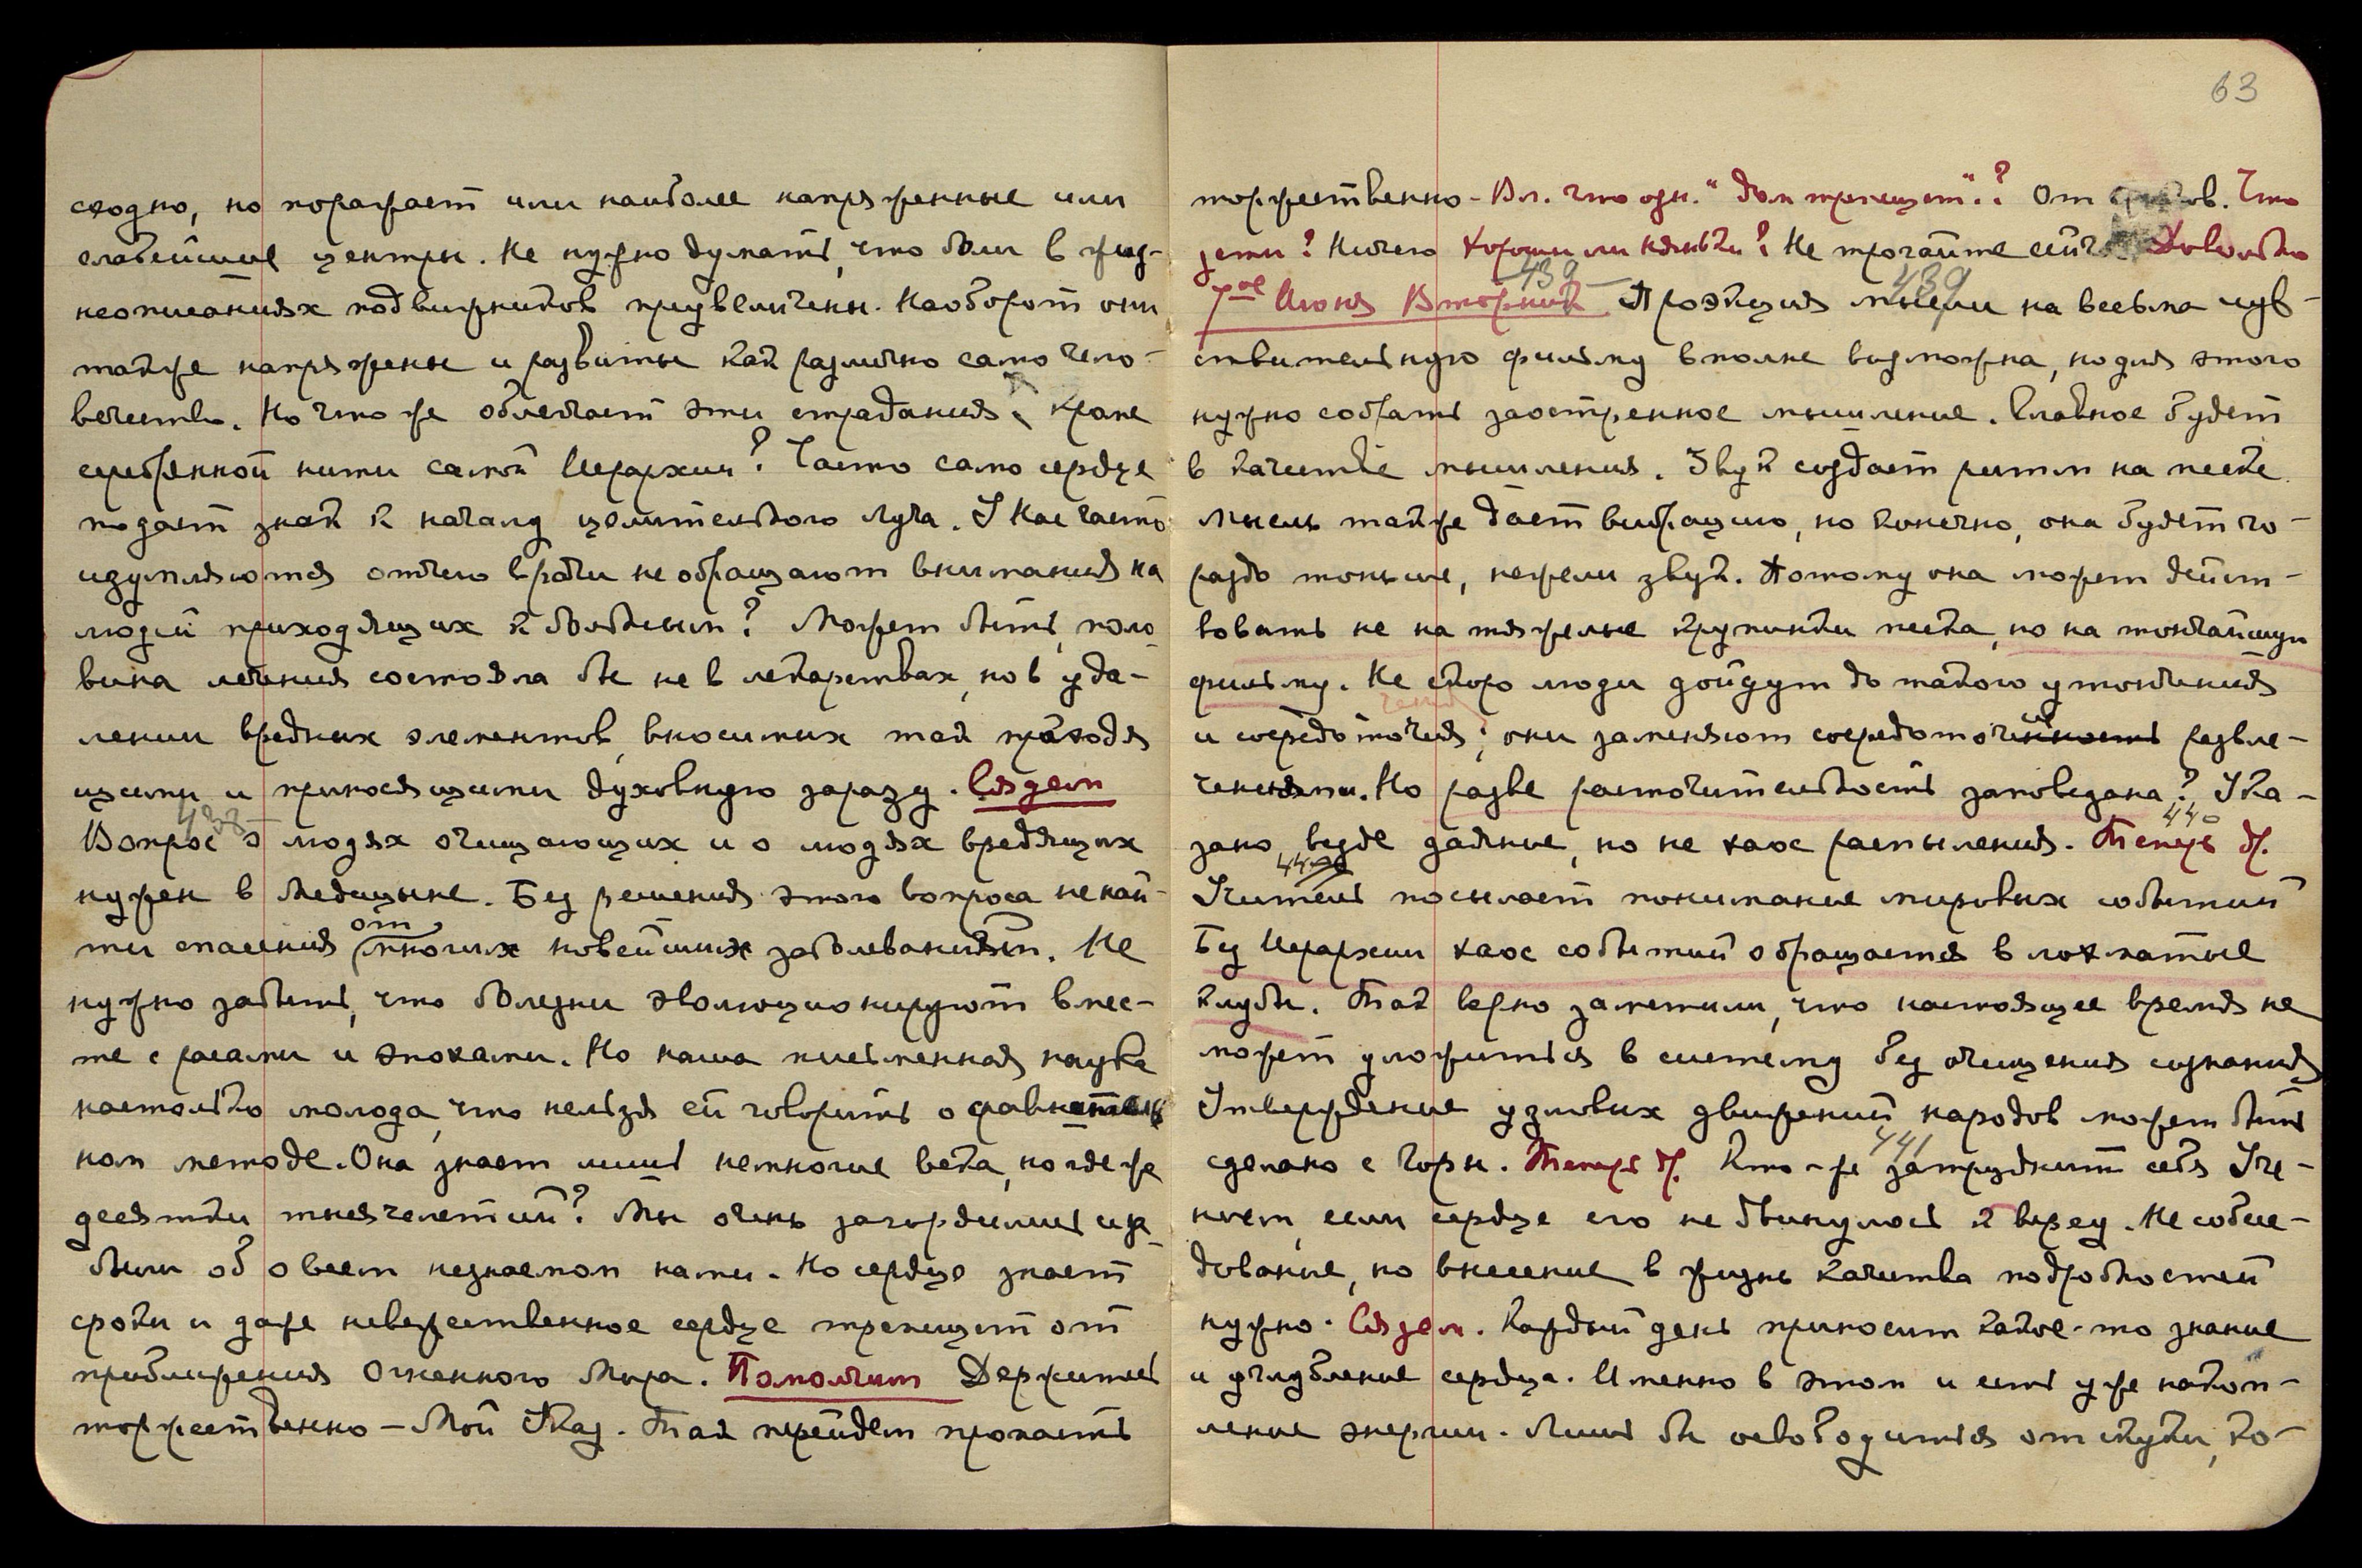 сходно, но поражает или наиболее напряженные или
слабейшие центры. Не нужно думать, что боли в жиз-
неописаниях подвижников преувеличены. Наоборот они
также напряжены и развиты как различно само чело-
вечество. Но что же облегчает эти страдания, кроме
серебренной нити самой Иерархии? Часто само сердце
подает знак к началу целительного луча. У Нас часто
изумляются отчего врачи не обращают внимания на
людей приходящих к больным? Может быть, поло-
вина лечения состояла бы не в лекарствах, но в уда-
лении вредных элементов, вносимых так приходя
щими и приносящими духовную заразу. Сядем
438
Вопрос о людях очищающих и о людях вредящих
нужен в Медицыне. Без решения этого вопроса не най-
ти спасения от многих новейших заболеваний. Не
нужно забыть, что болезни эволюционируют вмес-
те с расами и эпохами. Но наша письменная наука
настолько молода, что нельзя ей говорить о сравнитель
ном методе. Она знает лишь немногие века, но где же
десятки тысячелетий? Мы очень загордились и за-
были об о всем незнаемом нами. Но сердце знает
сроки и даже невежественное сердце трепещет от
приближения Огненного Мира. Помолчим Держитесь
торжественно – Мой Указ. Так перейдем пропасть
63
торжественно – Вл. что озн. "дом трепещет"? От Что
дети? Ничего Хороши ли Не трогайте Довольно
7ое Июня Вторник 439 439 Проэкция мысли на весьма чув-
ствительную фильму вполне возможна, но для этого
нужно собрать заостренное мышление. Главное будет
в качестве мышления. Звук создает ритм на песке.
Мысль также дает вибрацию, но конечно, она будет го-
раздо тоньше, нежели звук. Потому она может дейст-
вовать не на тяжелые крупинки песка, но на тончайшую
фильму. Не скоро люди дойдут до такого утончения
и сосредоточия; они заменяют развле-
чениями. Но разве расточительность заповедана? Ука-
440
зано везде даяние, но не хаос распыления. Теперь д.
440
Учитель посылает понимание мировых событий
Без Иерархии хаос событий обращается в лохматые
клубы. Так верно заметили, что настоящее время не
может уложиться в систему без очищения сознания
Утверждение узловых движений народов может быть
441
сделано с Горы. Теперь д. Кто-же затруднит себя Уче-
нием, если сердце его не двинулось к верху. Не собесе-
дование, но внесение в жизнь качества подробностей
нужно. Сядем. Каждый день приносит какое-то знание
и углубление сердца. Именно в этом и есть уже накоп-
ление энергии. Лишь бы освободиться от скуки, ко-